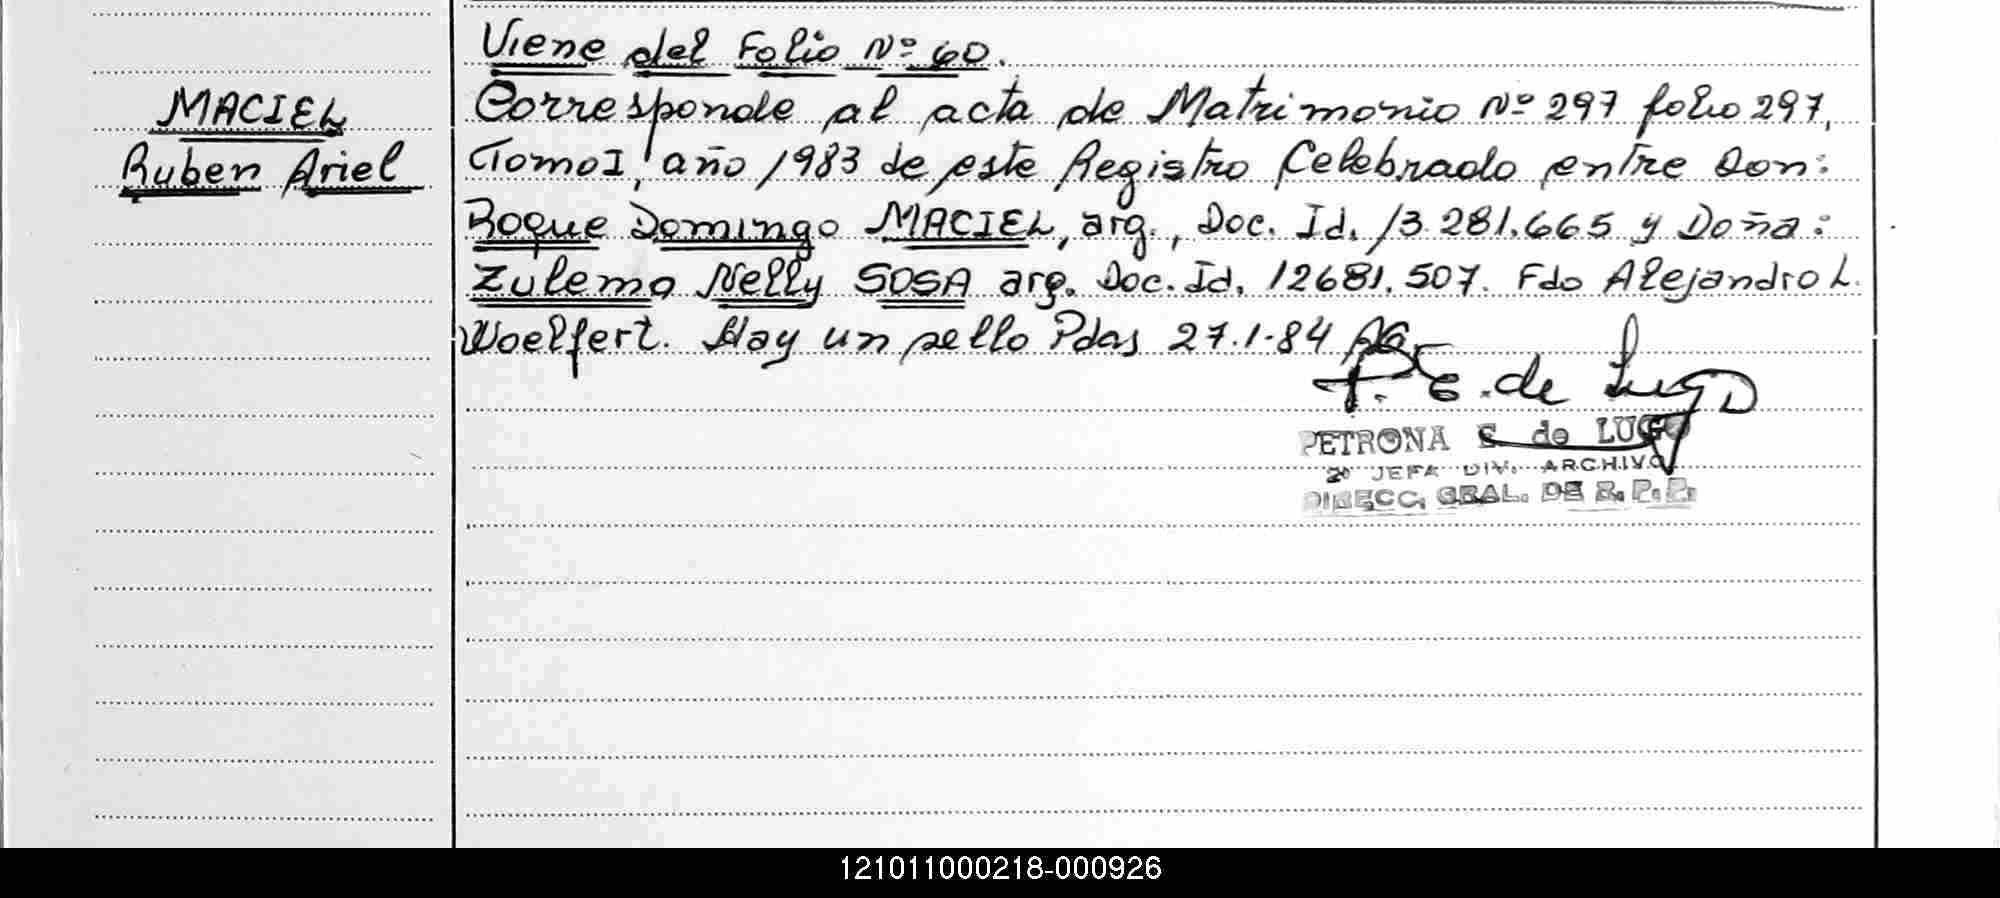 Viene del Folio Nº 60.
MACIEL
Ruben Ariel
Corresponde al acta de Matrimonio Nº 297 folio 297,
Tomo I, año 1983 de este Registro Celebrado entre Don:
Roque Domingo MACIEL, arg., Doc. Id. 13.281.665 y Doña:
Zulema Nelly SOSA arg. Doc. Id. 12681.507. Fdo Alejandro L.
Woelfert. Hay un sello Pdas 27.1.84
P. E. de Lugo
PETRONA E. de LUGO
2º JEFA DIV. ARCHIVO
DIRECC. GRAL. DE R. P. P.
121011000218-000926